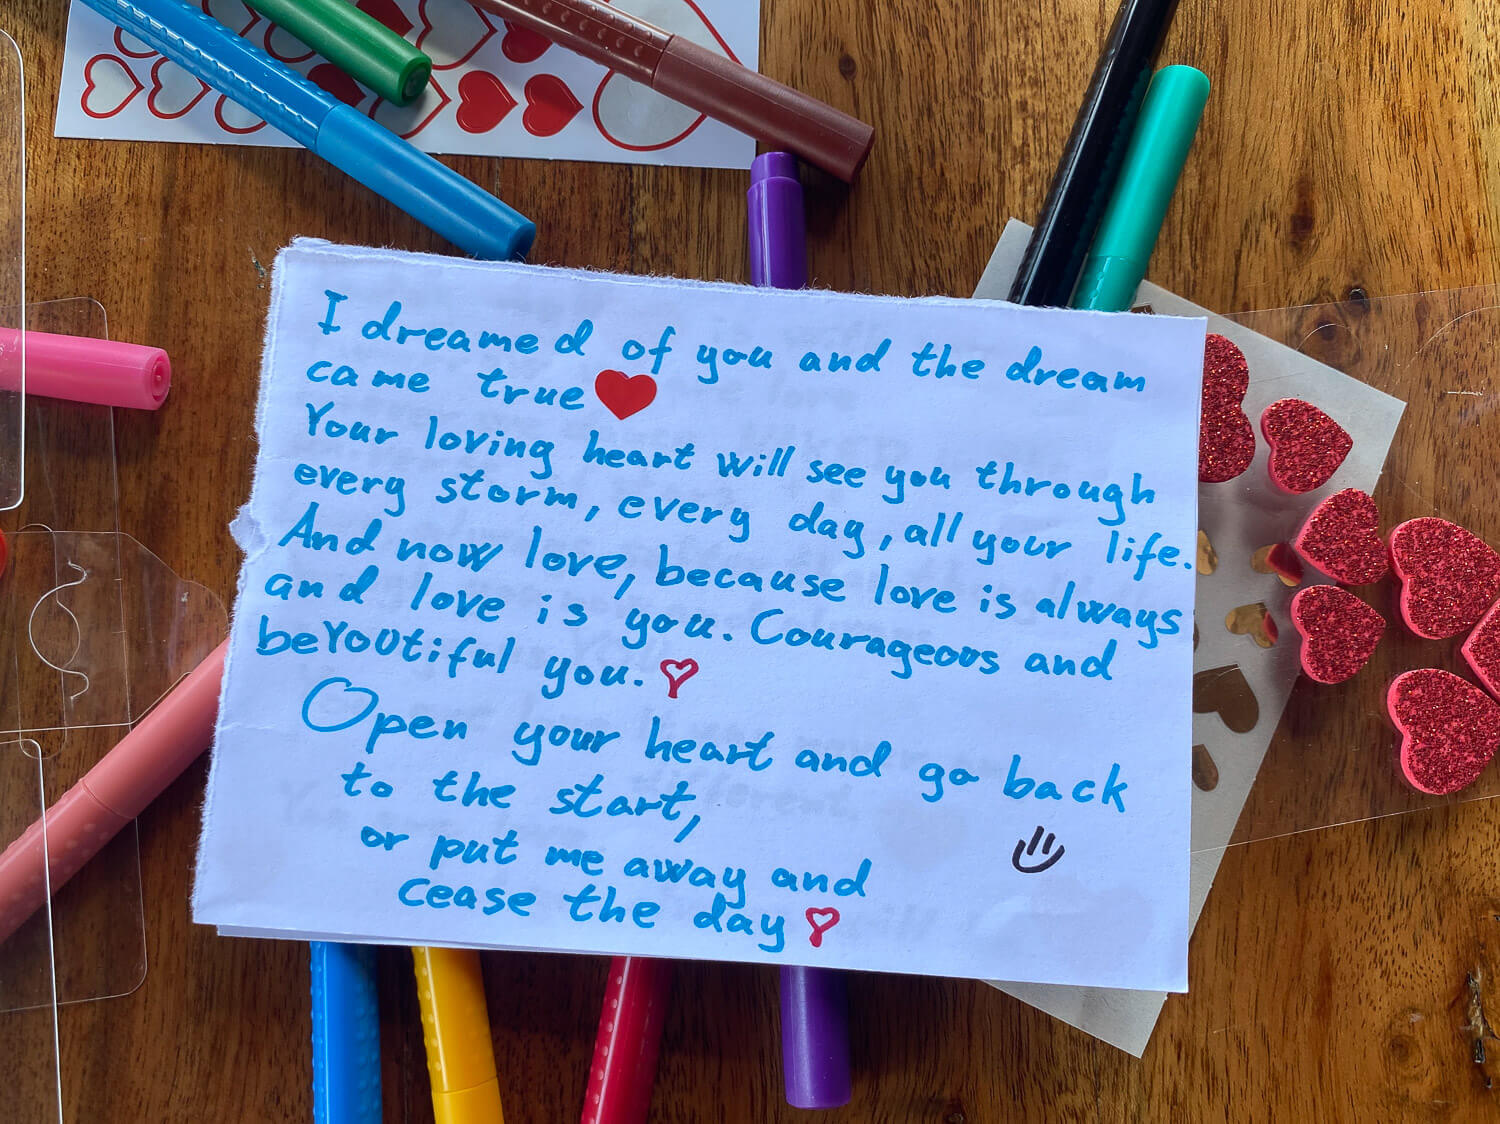 I dreamed of you and the dream
came true
Your loving heart will see you through
every storm, every day, all your life.
And now love, because love is always
and love is you. Courageous and
beYOUtiful you.
Open your heart and go back
to the start,
or put me away and
cease the day